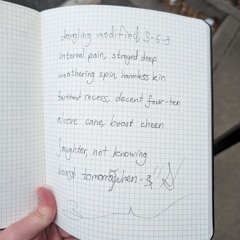 dangling modified, 3-5-3
internal pain, strayed deep
weathering spin, harmless kin
farthest recess, decent four-ten
alcove cane, boast cheen
laughter, not knowing
beast tomorrow